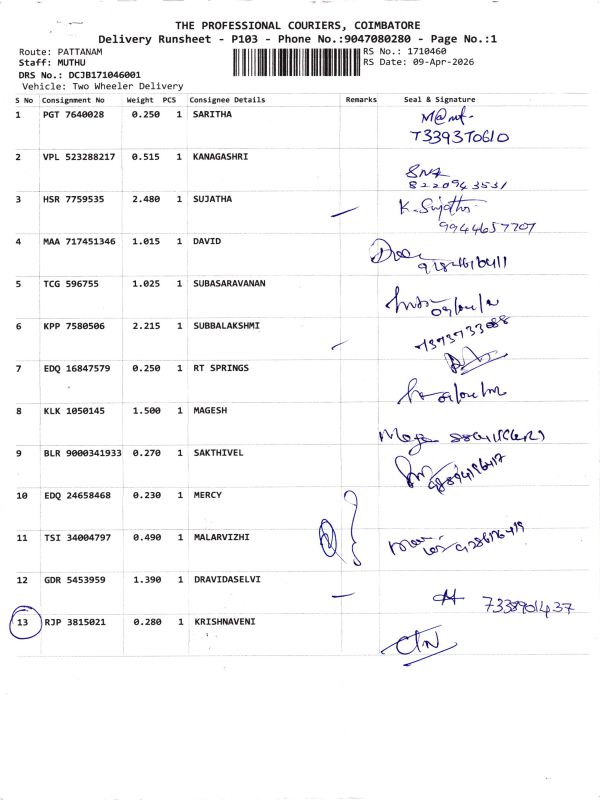 THE PROFESSIONAL COURIERS, COIMBATORE
Delivery Runsheet - P103 - Phone No.:9047080280 - Page No.:1
Route: PATTANAM RS No.: 1710460
Staff: MUTHU RS Date: 09-Apr-2026
DRS No.: DCJB171046001
Vehicle: Two Wheeler Delivery
S No Consignment No Weight PCS Consignee Details Remarks Seal & Signature
1 PGT 7640028 0.250 1 SARITHA
2 VPL 523288217 0.515 1 KANAGASHRI
8220943531
3 HSR 7759535 2.480 1 SUJATHA K. Sujatha
9944657707
4 MAA 717451346 1.015 1 DAVID
5 TCG 596755 1.025 1 SUBASARAVANAN
6 KPP 7580506 2.215 1 SUBBALAKSHMI
7 EDQ 16847579 0.250 1 RT SPRINGS
8 KLK 1050145 1.500 1 MAGESH
9 BLR 9000341933 0.270 1 SAKTHIVEL
10 EDQ 24658468 0.230 1 MERCY
11 TSI 34004797 0.490 1 MALARVIZHI
12 GDR 5453959 1.390 1 DRAVIDASELVI
7338901437
13 RJP 3815021 0.280 1 KRISHNAVENI
CTN